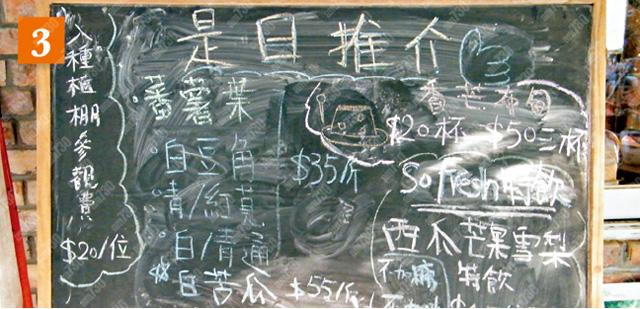 3
是日推介
入種植棚參觀費
$20/位
蕃薯葉
白豆角
青/紅莧
白/青通
白苦瓜 $55/斤
$35/斤
香芒布甸
$20杯 $50三杯
So Fresh特飲
西瓜芒果雪梨
不加糖 特飲